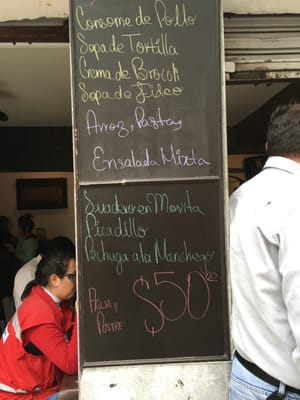 Consome de Pollo
Sopa de Tortilla
Crema de Brocoli
Sopa de Fideo
Arroz, Pasta,
Ensalada Mixta
Guadso en Morita
Picadillo
Pechuga a la Manchego
Agua y
Postre
$50.00